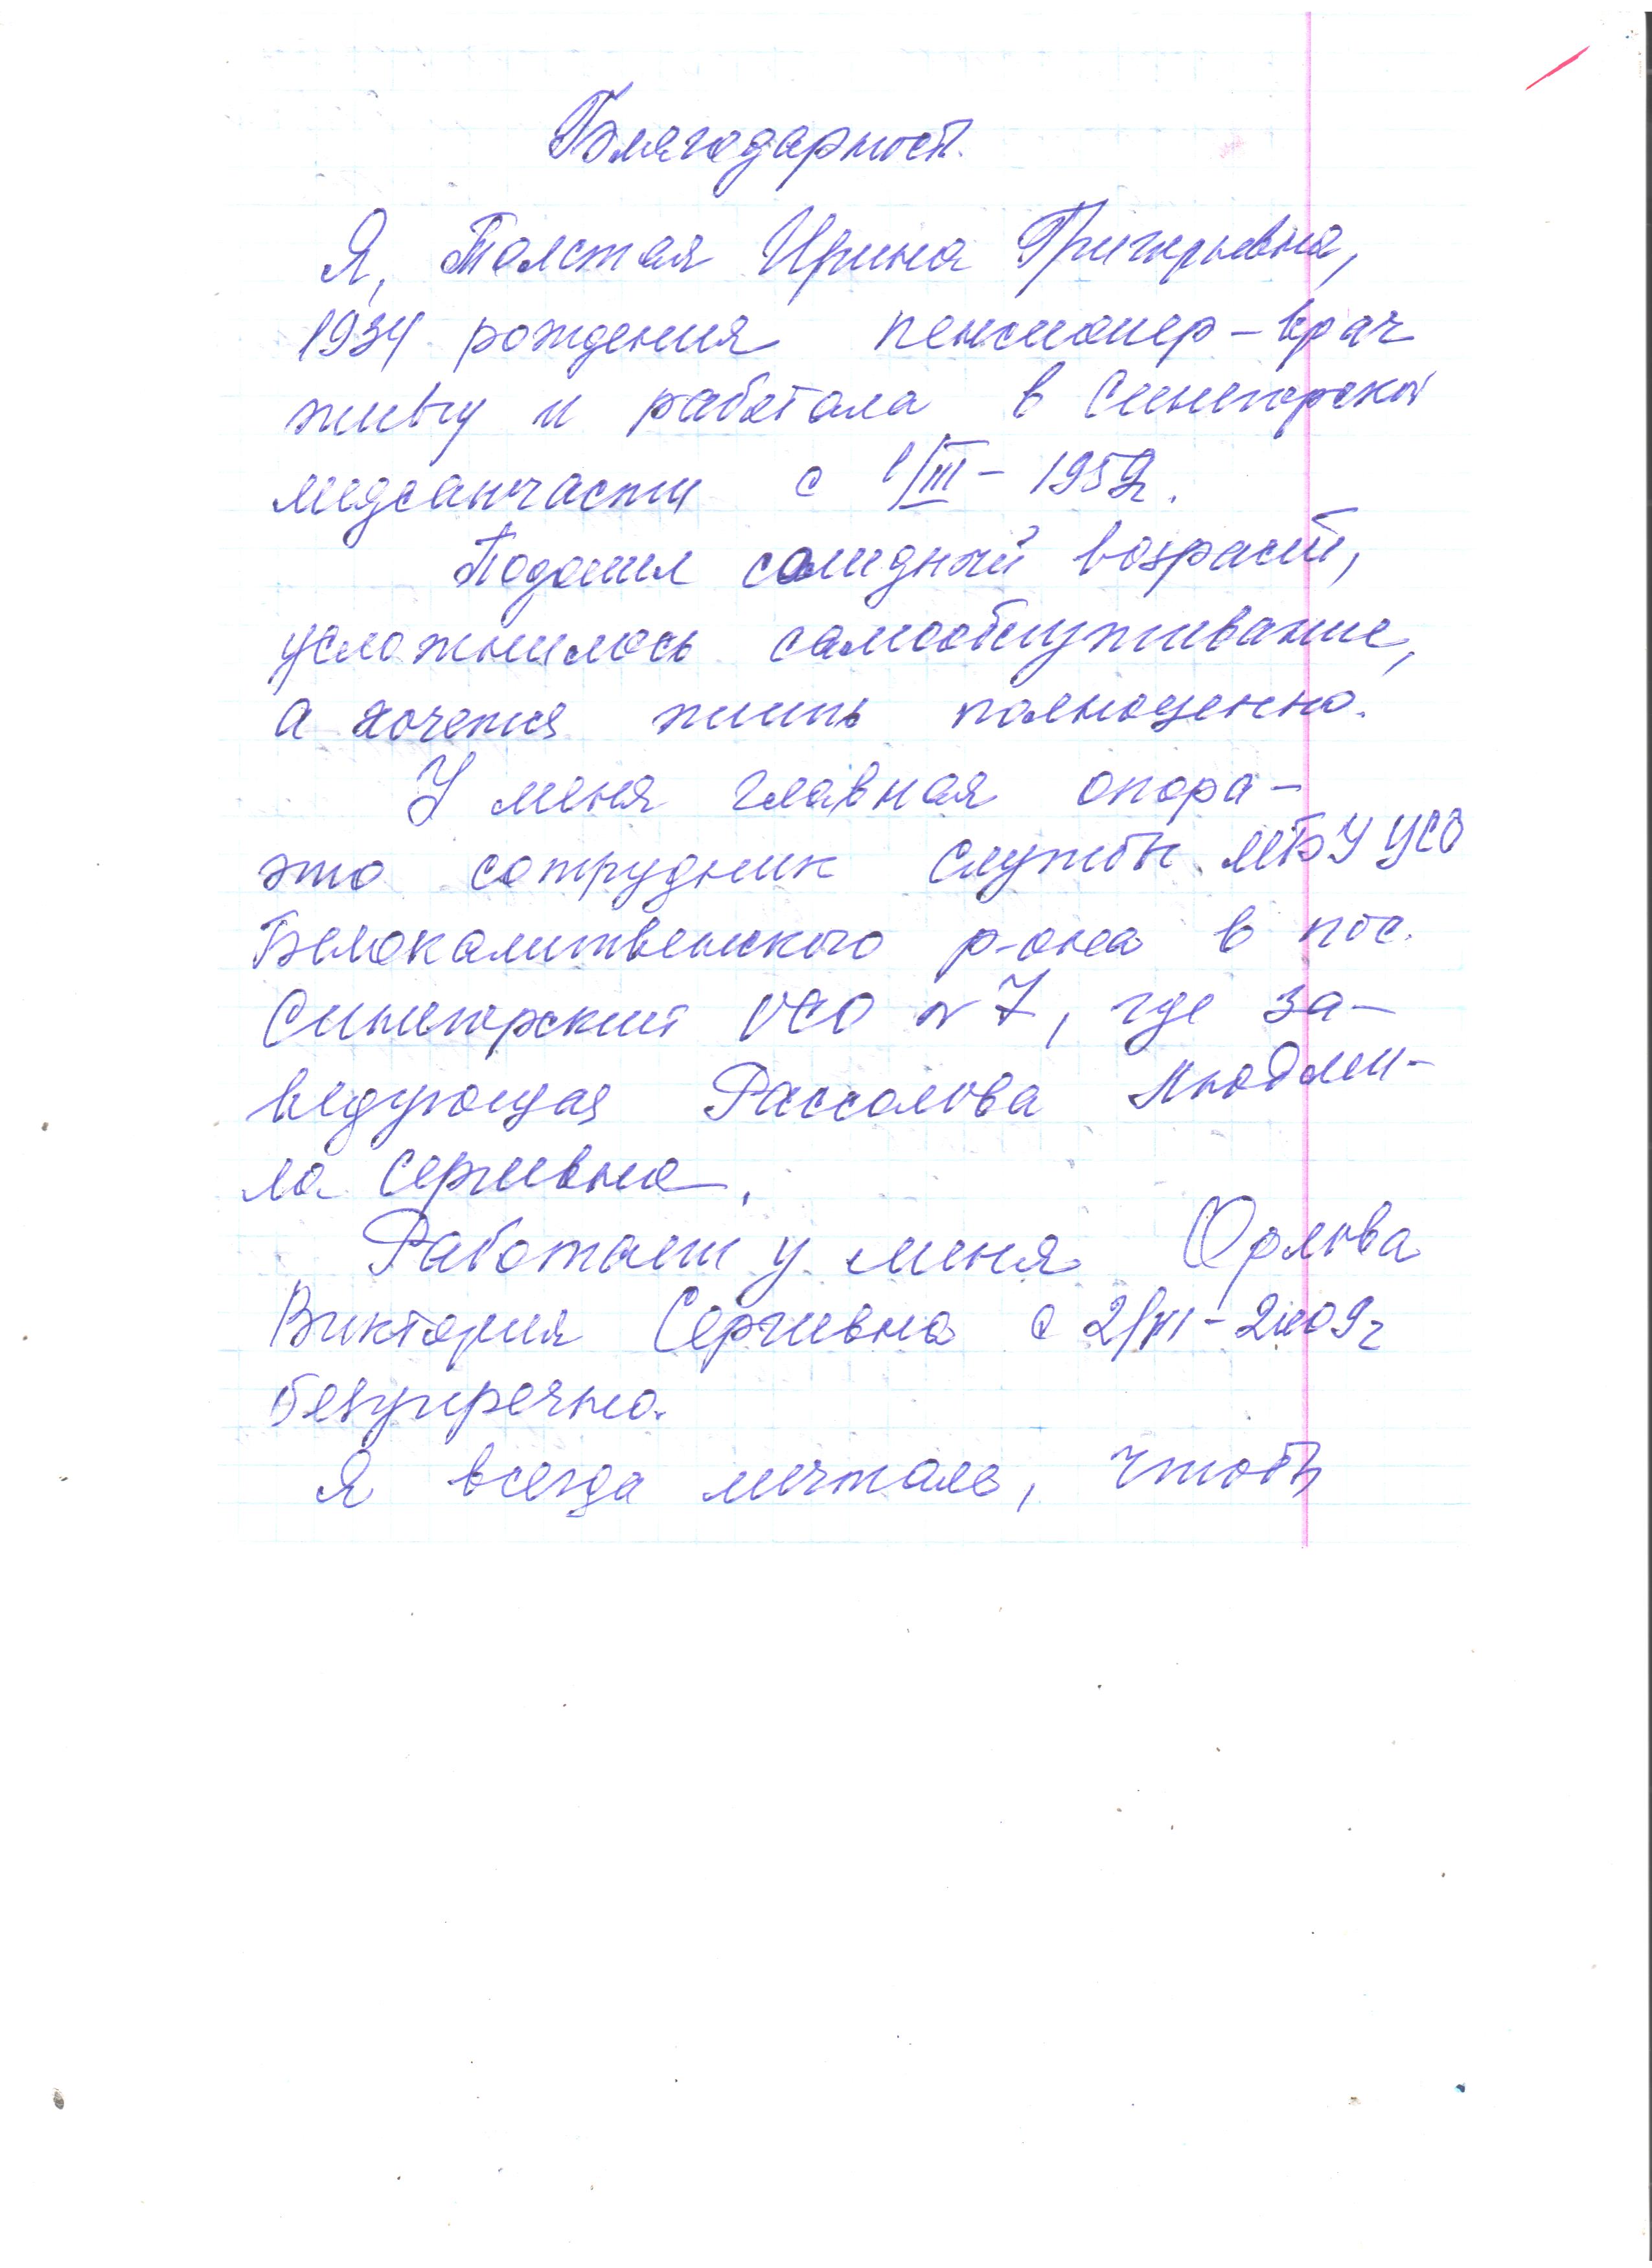 Благодарность.
Я, Толстая Ирина Григорьевна,
1934 рождения пенсионер-врач
живу и работала в Синегорской
медсанчасти с 1/III - 1959г.
Подошел солидный возраст,
усложнилось самообслуживание,
а хочется жить полноценно.
У меня главная опора-
это сотрудник службы МБУ УСО
Белокалитвенского р-она в пос.
Синегорский ОСО №7, где за-
ведующая Рассолова Людми-
ла Сергеевна.
Работает у меня Орлова
Виктория Сергеевна с 2/III - 2009г
безупречно.
Я всегда мечтала, чтобы